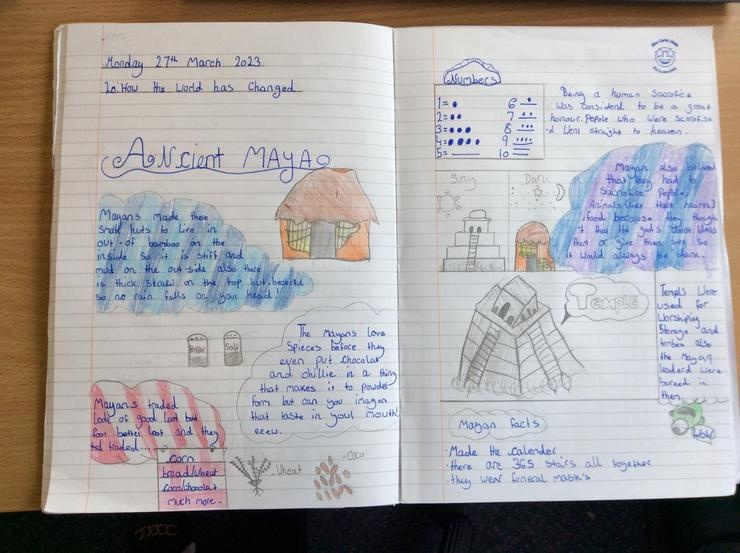 Monday 27th March 2023
Lo: How the World has Changed
Ancient Maya
Mayans made there
small huts to live in
out-of bamboo on the
inside so it is stiff and
mud on the out-side also there
is thick straw on the top but becerful
so no rain falls on your head!
Peper
Salt
The Mayans love
Spieces before they
even put chocolat
and chillie in a thing
that makes it to powder
form but can you imagen
that taste in your mouth!
eeew.
Mayans traded
lods of good loot but
foor better loot and they
traded....
corn
bread/wheat
coco/chocolat
much more..
Wheat
Coco
Numbers
1=
2=
3=
4=
5=
6
7
8
9
10
Being a human Sacrofice
was considerd to be a great
honour. Pepole who were Sacrofise
d Went straight to heaven.
Suny
Dark
Mayan also belived
that they had to
Sacrofice Pepole,
Animals (over there hearts)
food because they though
t that the gods
them or give them sun so
it would always be dark.
Temple
Templs were
used for
Worshiping
Storage and
tombes also
the Mayan
leaderd were
bureed in
then.
Wow
Mayan facts
· Made the calender
· there are 365 stairs all together
· they wear funeral mask's